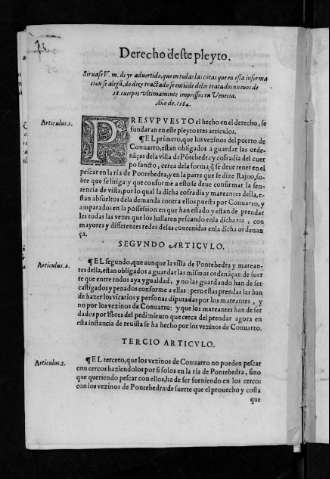 Derecho deste pleyto.
Siruase V. m. de yr aduertido, que en todas las citas que en esta informa
cion se alegã, do dize tractado se entiende delos tratados nueuos de
18 cuerpos vltimamente impressos en Venecia.
Año de 1584.
Articulus.1.
PRESVPVESTO el hecho en el derecho, se
fundaran en este pleyto tres articulos.
¶ EL primero, que los vezinos del puerto de
Conuarro, estan obligados a guardar las orde-
nãças dela villa de Põtebedra y cofradia del cuer
po sancto, cerca dela forma q̃ se deue tener en el
pescar en la ria de Pontebedra, y en la parte que se dize Rajoo, so-
bre que se litiga y que conforme a esto se deue confirmar la sen-
tencia de vista, por lo qual la dicha cofradia y mareantes della, e-
stan absueltos dela demanda contra ellos puesta por Conuarro, y
amparados en la possession en que han estado y estan de prendar
les todas las vezes que los hallaren pescando enla dicha ria, con
mayores y differentes redes delas contenidas enla dicha ordenan
ça.
SEGVNDO ARTICVLO.
Articulus.2.
¶ EL segundo, que aunque la villa de Pontebedra y marean-
tes della, estan obligados a guardar las mismas ordenãças de suer
te que entre todos aya ygualdad, y no las guardando han de ser
castigados y penados conforme a ellas: pero estas prendas las han
de hazer los vicarios y personas diputadas por los mareantes, y
no por los vezinos de Conuarro: y que los mareantes han de ser
dados por libres del pedimiento que cerca del prendar agora en
esta instancia de reuista se ha hecho por los vezinos de Conuarro.
TERCIO ARTICVLO.
Articulus.3.
¶ EL tercero, que los vezinos de Conuarro no pueden pescar
con cercos haziendolos por si solos en la ria de Pontebedra, sino
que queriendo pescar con ellos, ha de ser forniendo en los cercos
con los vezinos de Pontebedra de suerte que el prouecho y costa
que